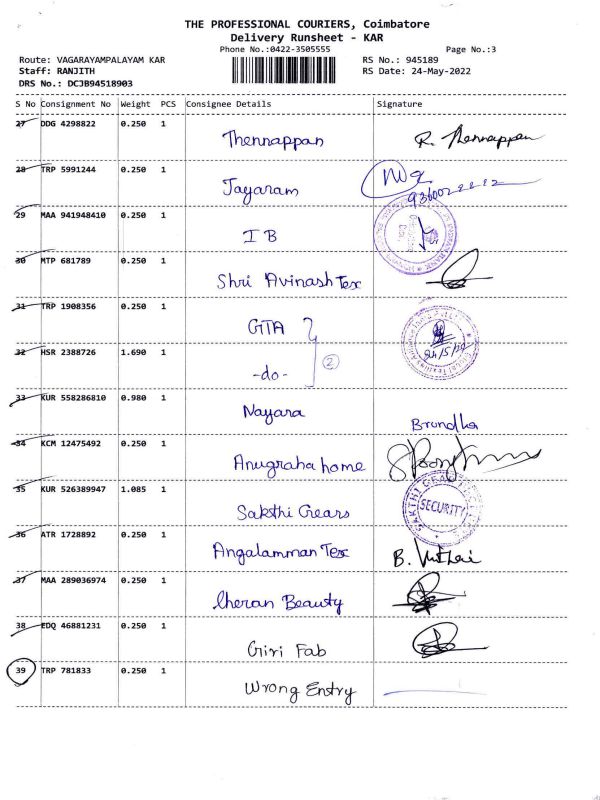 THE PROFESSIONAL COURIERS, Coimbatore
Delivery Runsheet - KAR
Phone No.:0422-3505555
Page No.:3
Route: VAGARAYAMPALAYAM KAR
RS No.: 945189
Staff: RANJITH
RS Date: 24-May-2022
DRS No.: DCJB94518903
S No Consignment No Weight PCS Consignee Details Signature
27 DDG 4298822 0.250 1 Thennappan R. Thennappan
28 TRP 5991244 0.250 1 Jayaram
29 MAA 941948410 0.250 1 I B
30 MTP 681789 0.250 1 Shri Avinash Tex
31 TRP 1908356 0.250 1 GTA
32 HSR 2388726 1.690 1 -do- 2
33 KUR 558286810 0.980 1 Nayara Brundha
34 KCM 12475492 0.250 1 Anugraha home
35 KUR 526389947 1.085 1 Sakthi Gears SAKTHI GEAR SECURITY
36 ATR 1728892 0.250 1 Angalamman Tex B.
37 MAA 289036974 0.250 1 Cheran Beauty
38 EDQ 46881231 0.250 1 Giri Fab
39 TRP 781833 0.250 1 Wrong Entry